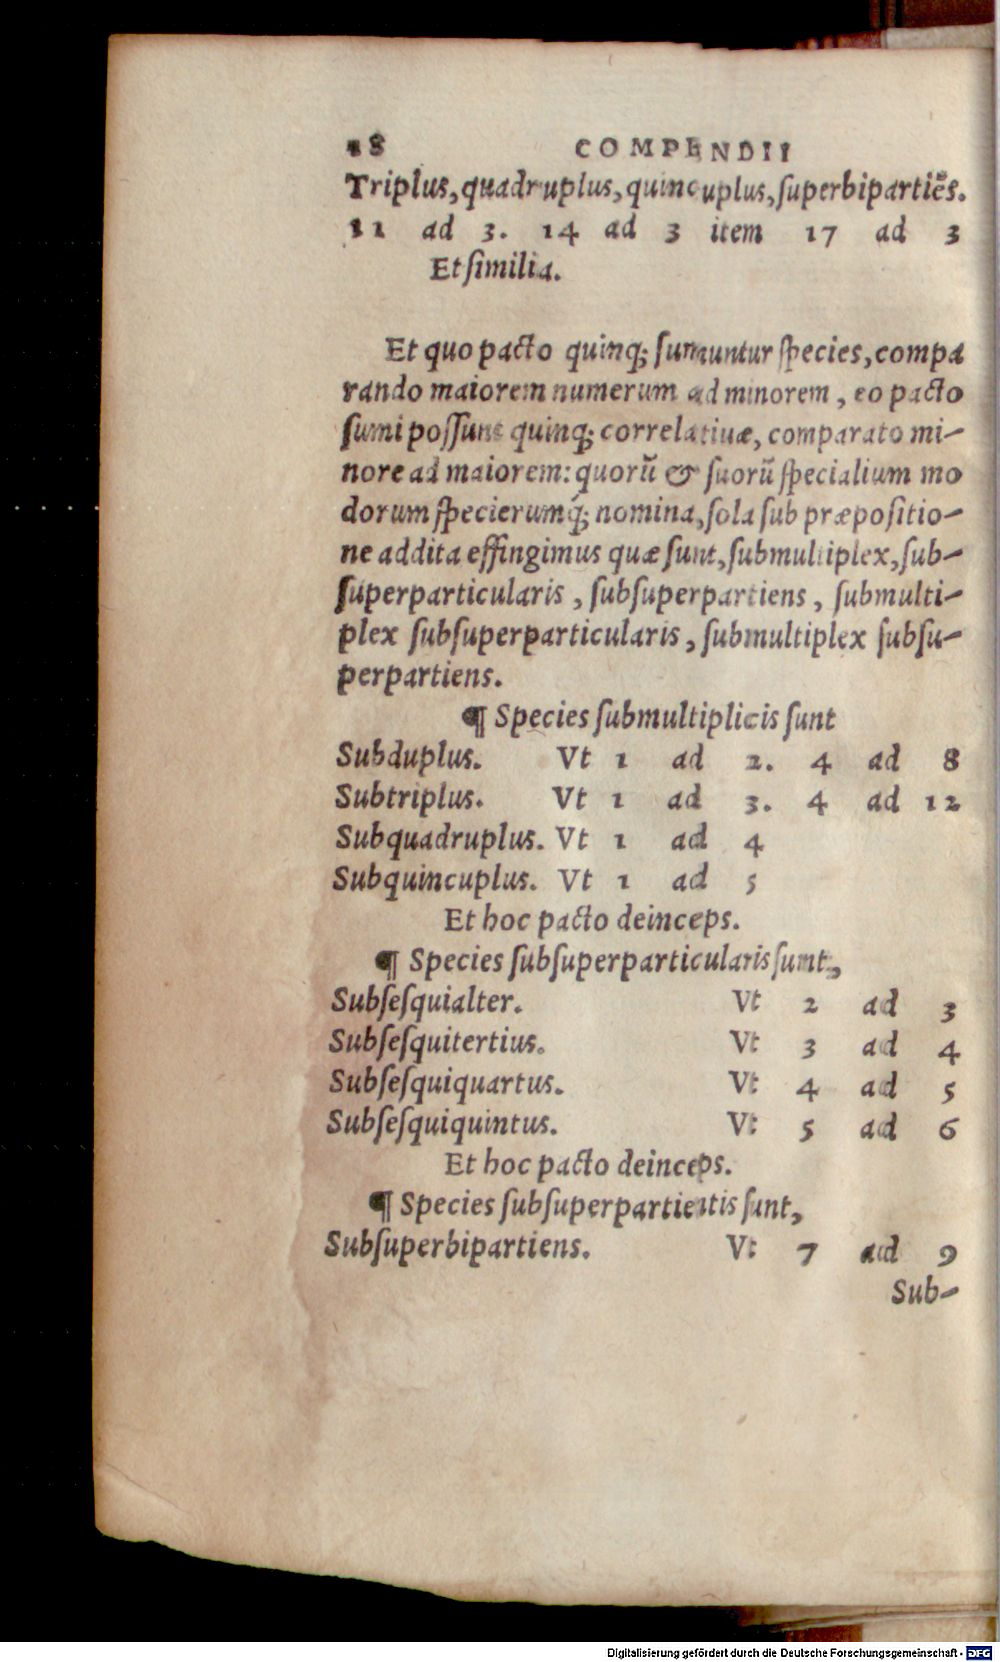 18 COMPENDII
Triplus, quadruplus, quincuplus, ſuperbipartiēs.
11 ad 3. 14 ad 3 item 17 ad 3
Et ſimilia.
Et quo pacto quinq; ſumuntur ſpecies, compa
rando maiorem numerum ad minorem, eo pacto
ſumi poſſunt quinq; correlatiuæ, comparato mi-
nore ad maiorem: quorũ & ſuorũ ſpecialium mo
dorum ſpecierumq́; nomina, ſola ſub præpoſitio-
ne addita effingimus quæ ſunt, ſubmultiplex, ſub-
ſuperparticularis, ſubſuperpartiens, ſubmulti-
plex ſubſuperparticularis, ſubmultiplex ſubſu-
perpartiens.
¶ Species ſubmultiplicis ſunt
Subduplus. Vt 1 ad 2. 4 ad 8
Subtriplus. Vt 1 ad 3. 4 ad 12
Subquadruplus. Vt 1 ad 4
Subquincuplus. Vt 1 ad 5
Et hoc pacto deinceps.
¶ Species ſubſuperparticularis ſunt,
Subſeſquialter. Vt 2 ad 3
Subſeſquitertius. Vt 3 ad 4
Subſeſquiquartus. Vt 4 ad 5
Subſeſquiquintus. Vt 5 ad 6
Et hoc pacto deinceps.
¶ Species ſubſuperpartientis ſunt,
Subſuperbipartiens. Vt 7 ad 9
Sub-
Digitalisierung gefördert durch die Deutsche Forschungsgemeinschaft - DFG